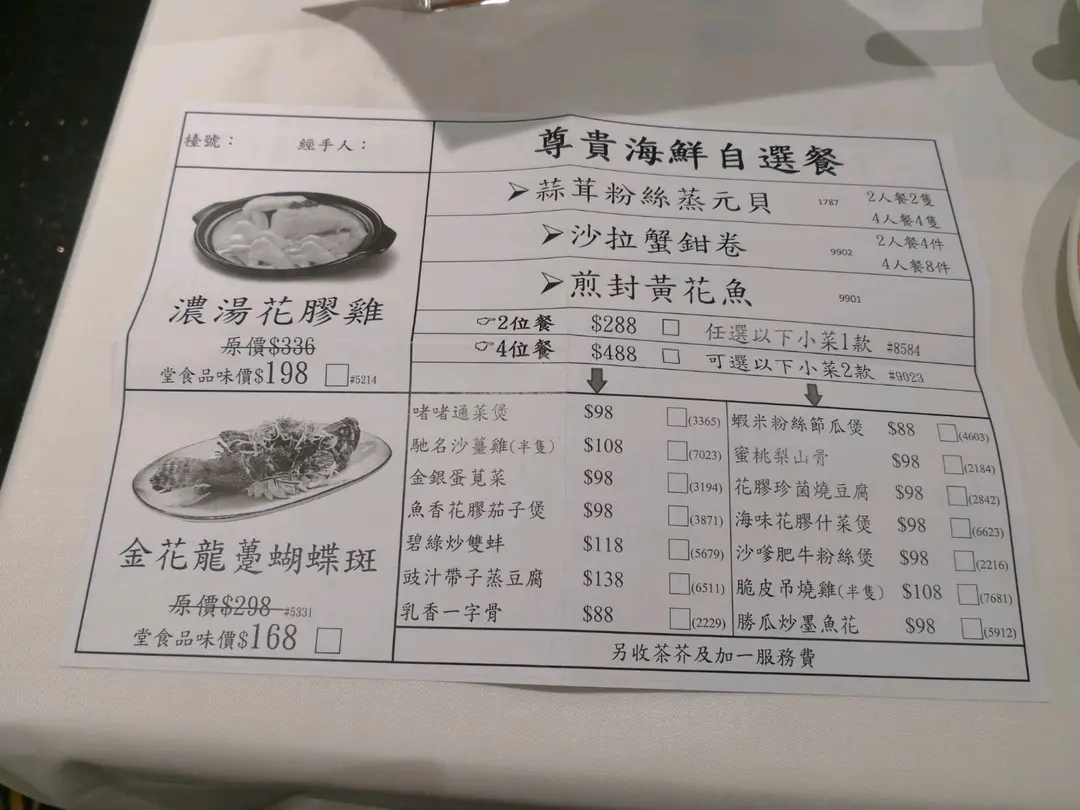 檯號： 經手人：
濃湯花膠雞
原價$336
堂食品味價$198 #5214
金花龍躉蝴蝶斑
原價$298 #5331
堂食品味價$168
尊貴海鮮自選餐
➢蒜茸粉絲蒸元貝 1787 2人餐2隻
4人餐4隻
➢沙拉蟹鉗卷 9902 2人餐4件
4人餐8件
➢煎封黃花魚 9901
☞2位餐 $288 □ 任選以下小菜1款 #8584
☞4位餐 $488 □ 可選以下小菜2款 #9023
啫啫通菜煲 $98 □(3365)
馳名沙薑雞(半隻) $108 □(7023)
金銀蛋莧菜 $98 □(3194)
魚香花膠茄子煲 $98 □(3871)
碧綠炒雙蚌 $118 □(5679)
豉汁帶子蒸豆腐 $138 □(6511)
乳香一字骨 $88 □(2229)
蝦米粉絲節瓜煲 $88 □(4603)
蜜桃梨山骨 $98 □(2184)
花膠珍菌燒豆腐 $98 □(2842)
海味花膠什菜煲 $98 □(6623)
沙嗲肥牛粉絲煲 $98 □(2216)
脆皮吊燒雞(半隻) $108 □(7681)
勝瓜炒墨魚花 $98 □(5912)
另收茶芥及加一服務費